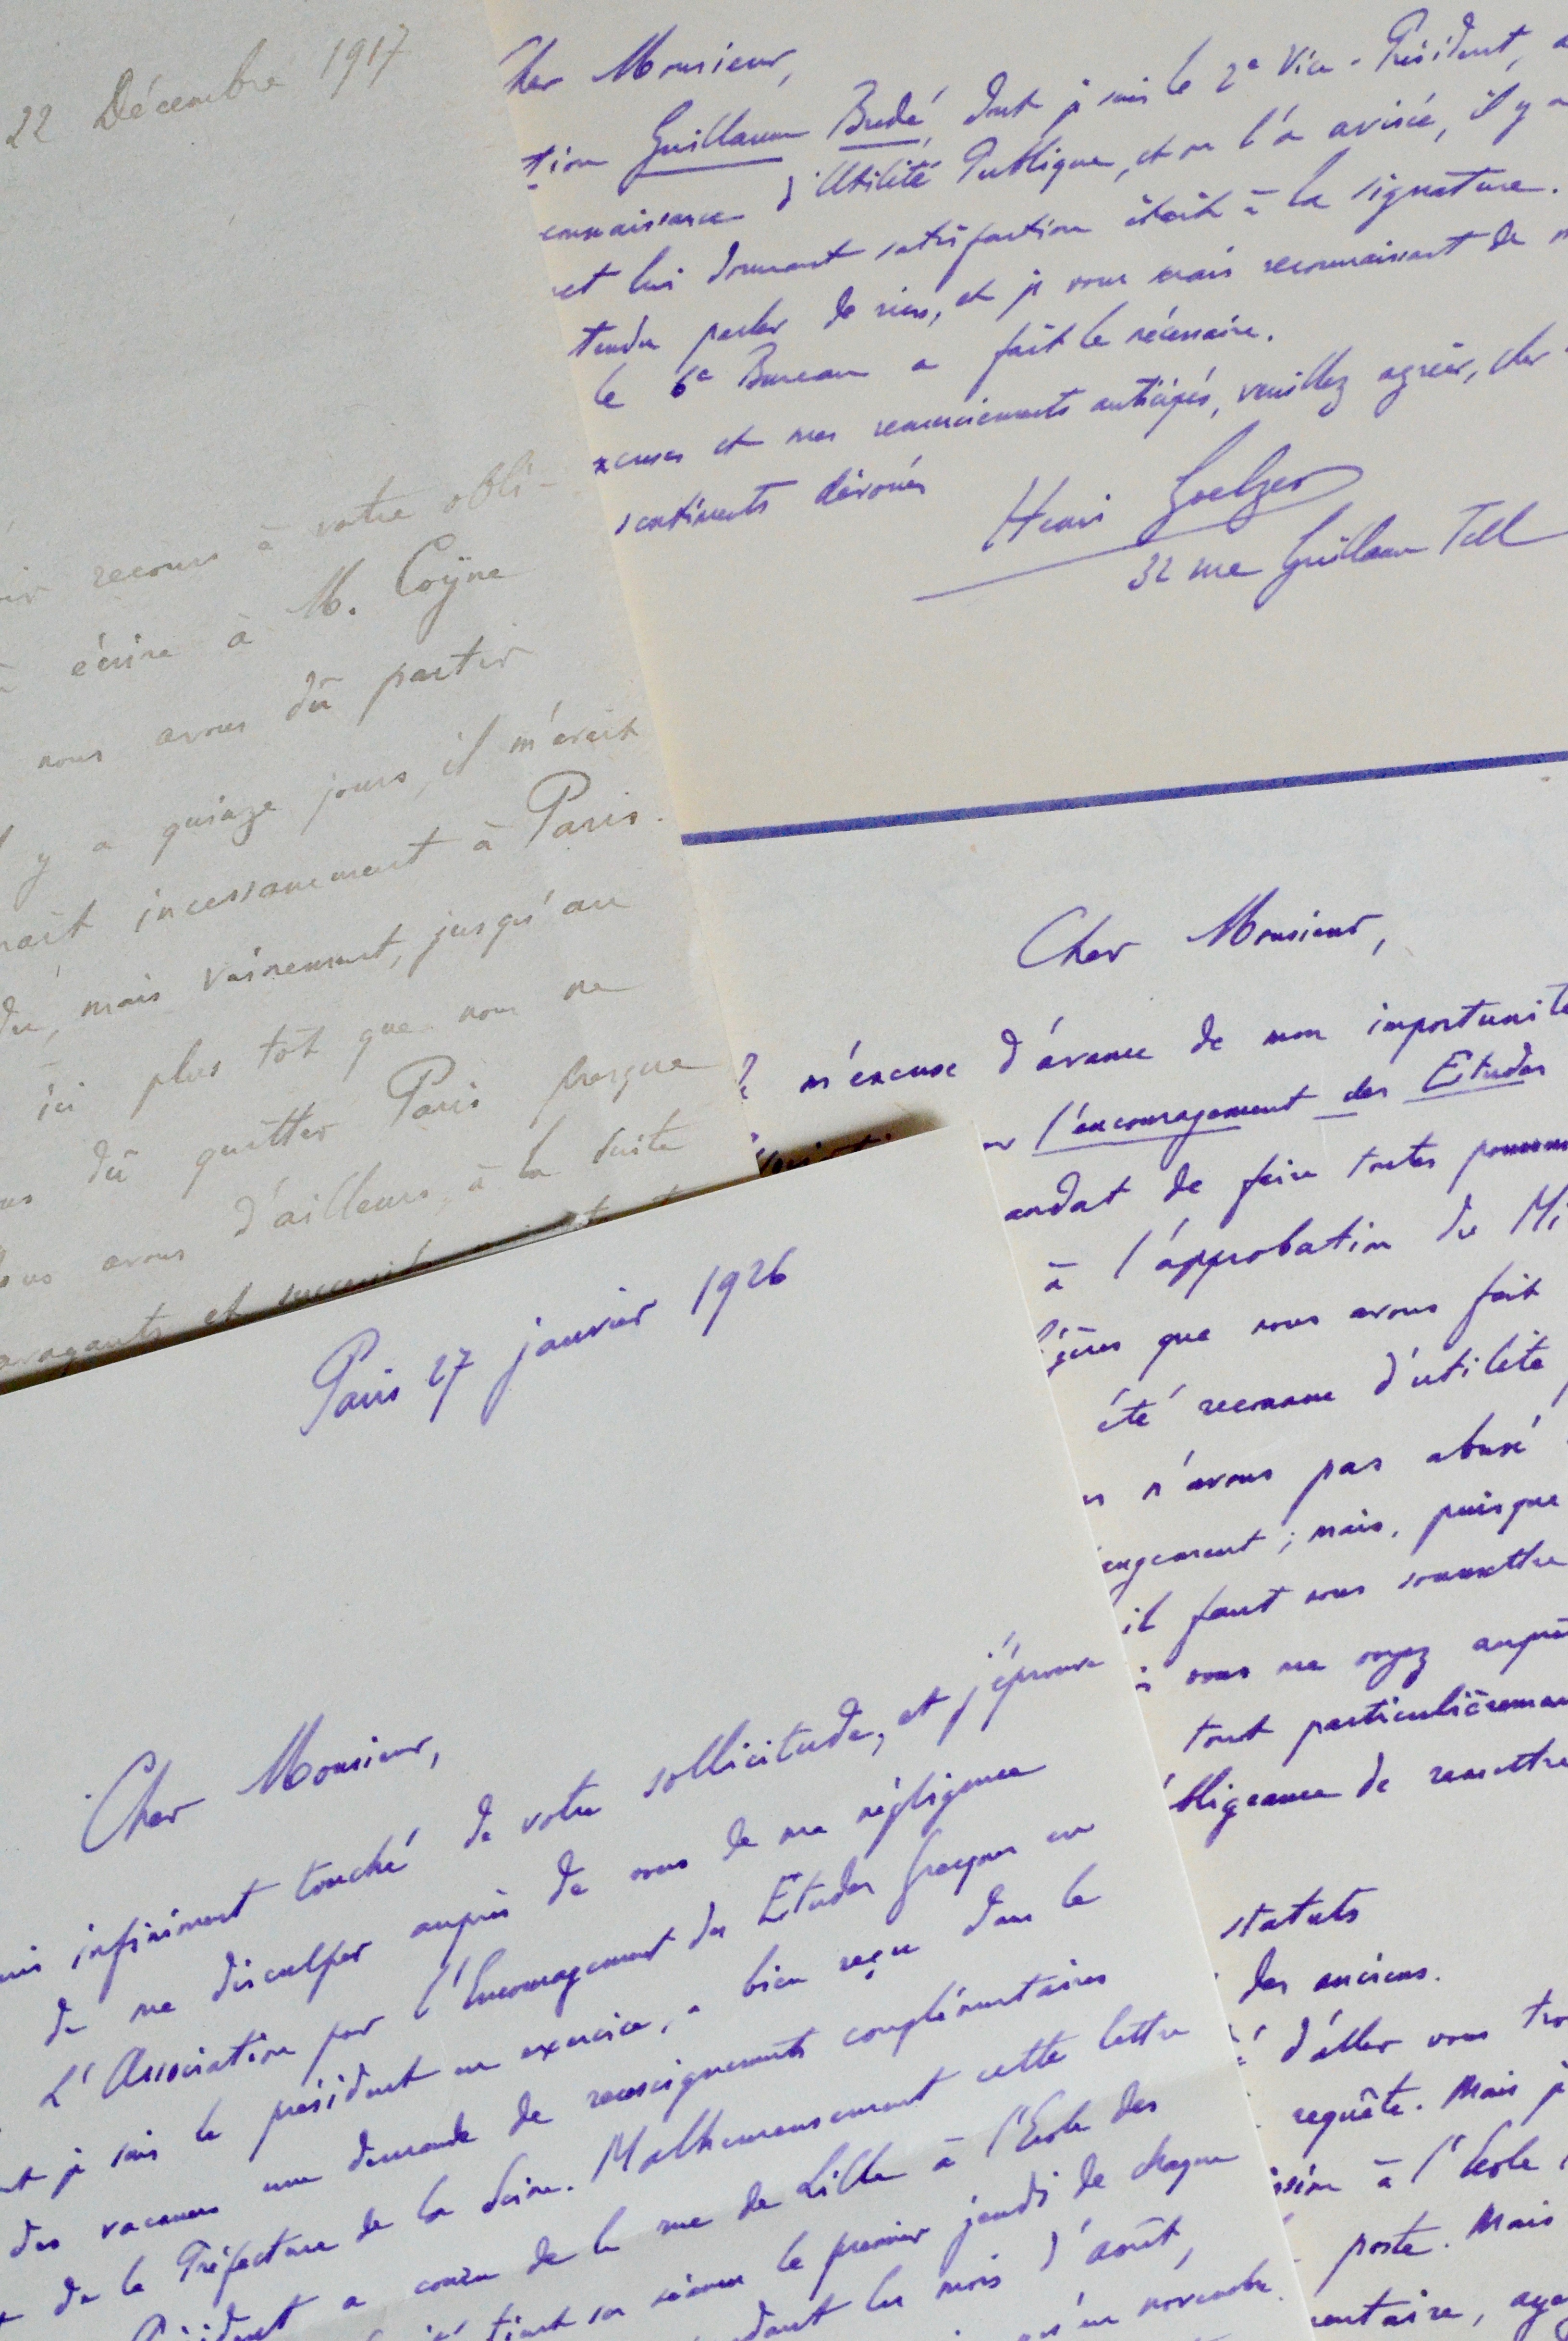 22 Décembre 1917
recours à votre obli-
écrire à M. Coÿne
nous avons dû partir
y a quinze jours, il m'avait
incessamment à Paris.
mais vainement, jusqu'au
ici plus tôt que nous ne
dû quitter Paris presque
avons d'ailleurs, à la suite
et
Cher Monsieur,
tion Guillaume Budé, dont je suis le 2e Vice-Président, a
connaissance d'Utilité Publique, et on l'a avisée, il y a
et lui donnant satisfaction était à la signature.
tendu parler de rien, et je vous serais reconnaissant de
le 6e Bureau a fait le nécessaire.
xcuses et mes remerciements anticipés, veuillez agréer, cher
sentiments dévoués
Henri Goelzer
32 rue Guillaume Tell
Cher Monsieur,
m'excuse d'avance de mon importunité
l'encouragement des Etudes
andat de faire toutes
à l'approbation du Mi
gères que nous avons fait
été reconnue d'utilité
n'avons pas abusé
engement ; mais, puisque
il faut nous soumettre
vous me voyez auprè
tout particulièremen
bligeance de remettre
statuts
des anciens.
d'aller vous tro
requête. Mais j
à l'Ecole
poste. Mais
entaire, aya
Paris 27 janvier 1926
Cher Monsieur,
uis infiniment touché de votre sollicitude, et j'éprouve
de me disculper auprès de vous de ma négligence
L'Association pour l'Encouragement des Etudes grecques en
t je suis le président en exercice, a bien reçu dans le
des vacances une demande de renseignements complémentaires
de la Préfecture de la Seine. Malheureusement cette lettre
a couru de la rue de Lille à l'Ecole des
tient sa séance le premier jeudi de chaque
les mois d'août,
novembre.